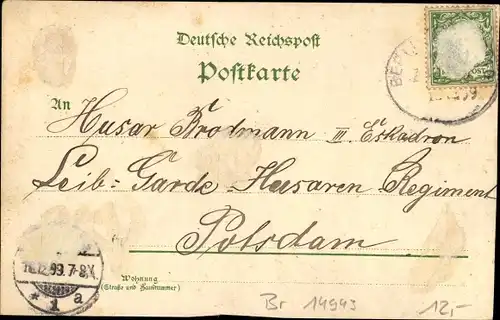 Deutsche Reichspost
Postkarte
BER
99
An
Husar Brodmann III Eskadron
Leib-Garde-Husaren Regiment
Potsdam
16.12.99.7-8V.
* 1 a
Wohnung
(Straße und Hausnummer)
Br 14943
12,-